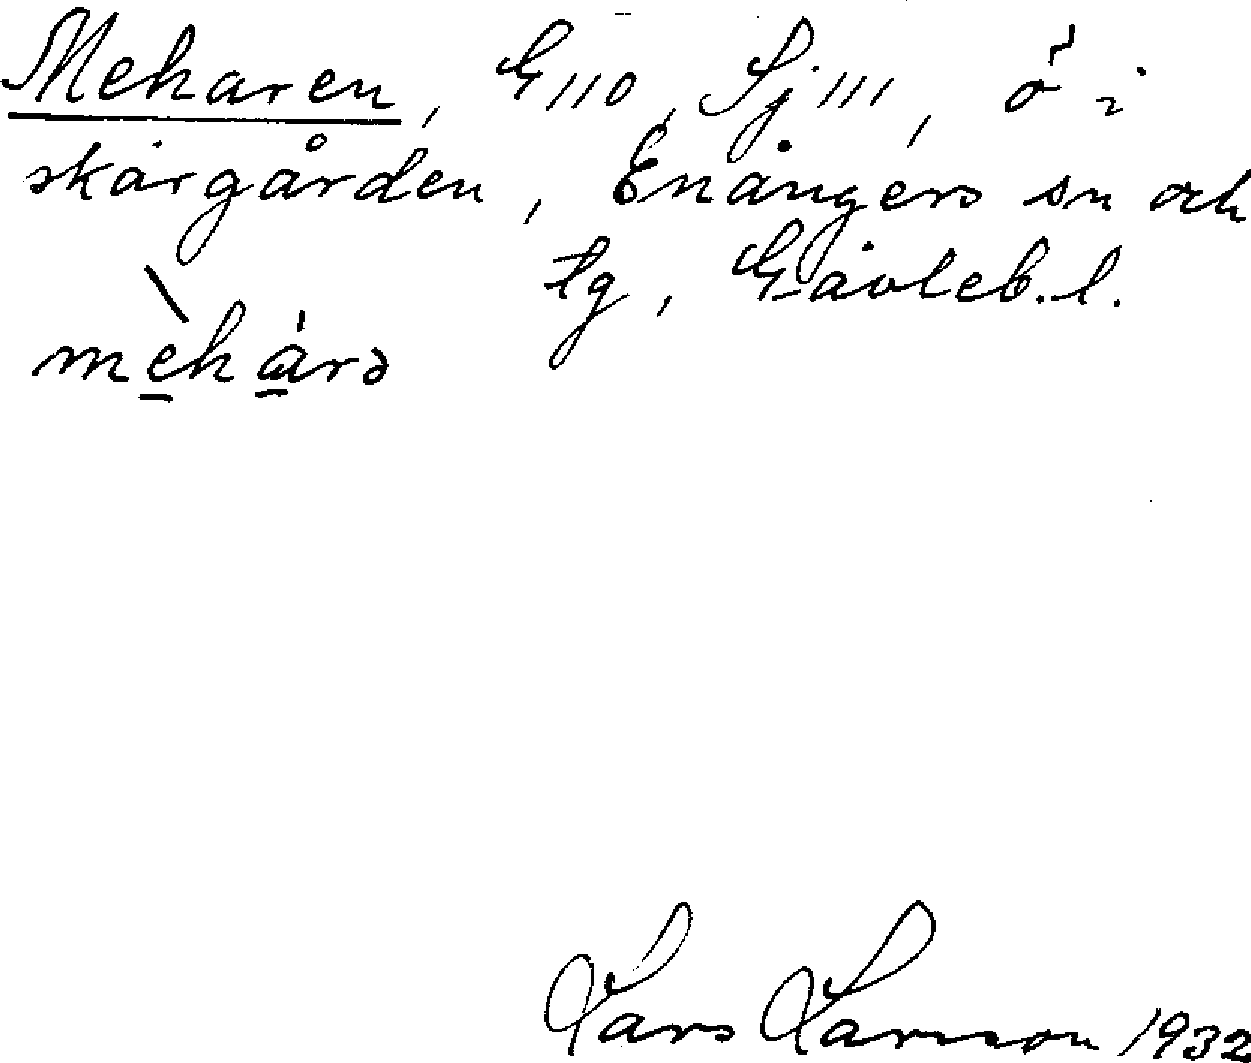 Meharen, G110, Sj111, ö i
skärgården, Enångers sn och
tg, Gävleb. l.
mèhárə
Lars Larsson 1932